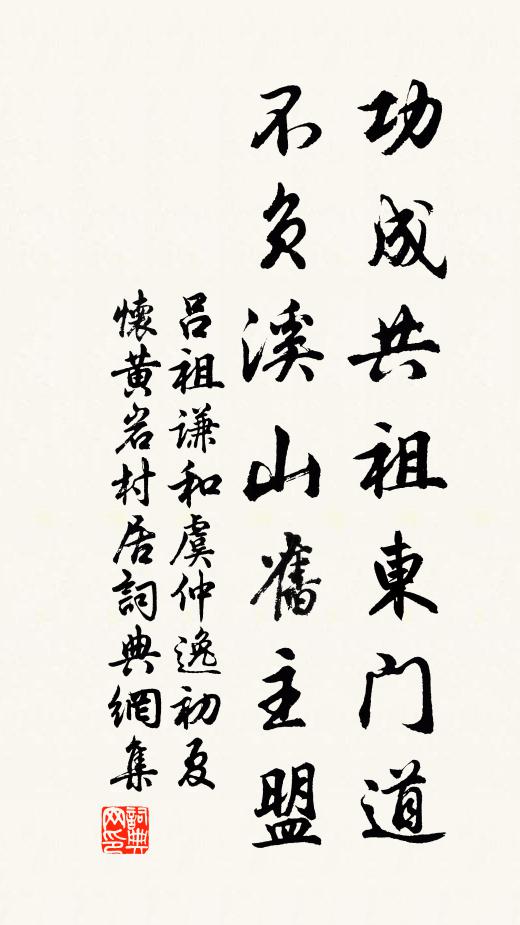 功成共祖東門道
不負溪山舊主盟
呂祖謙和虞仲逸初夏
懷黃岩村居詞典網集
詞典
网印